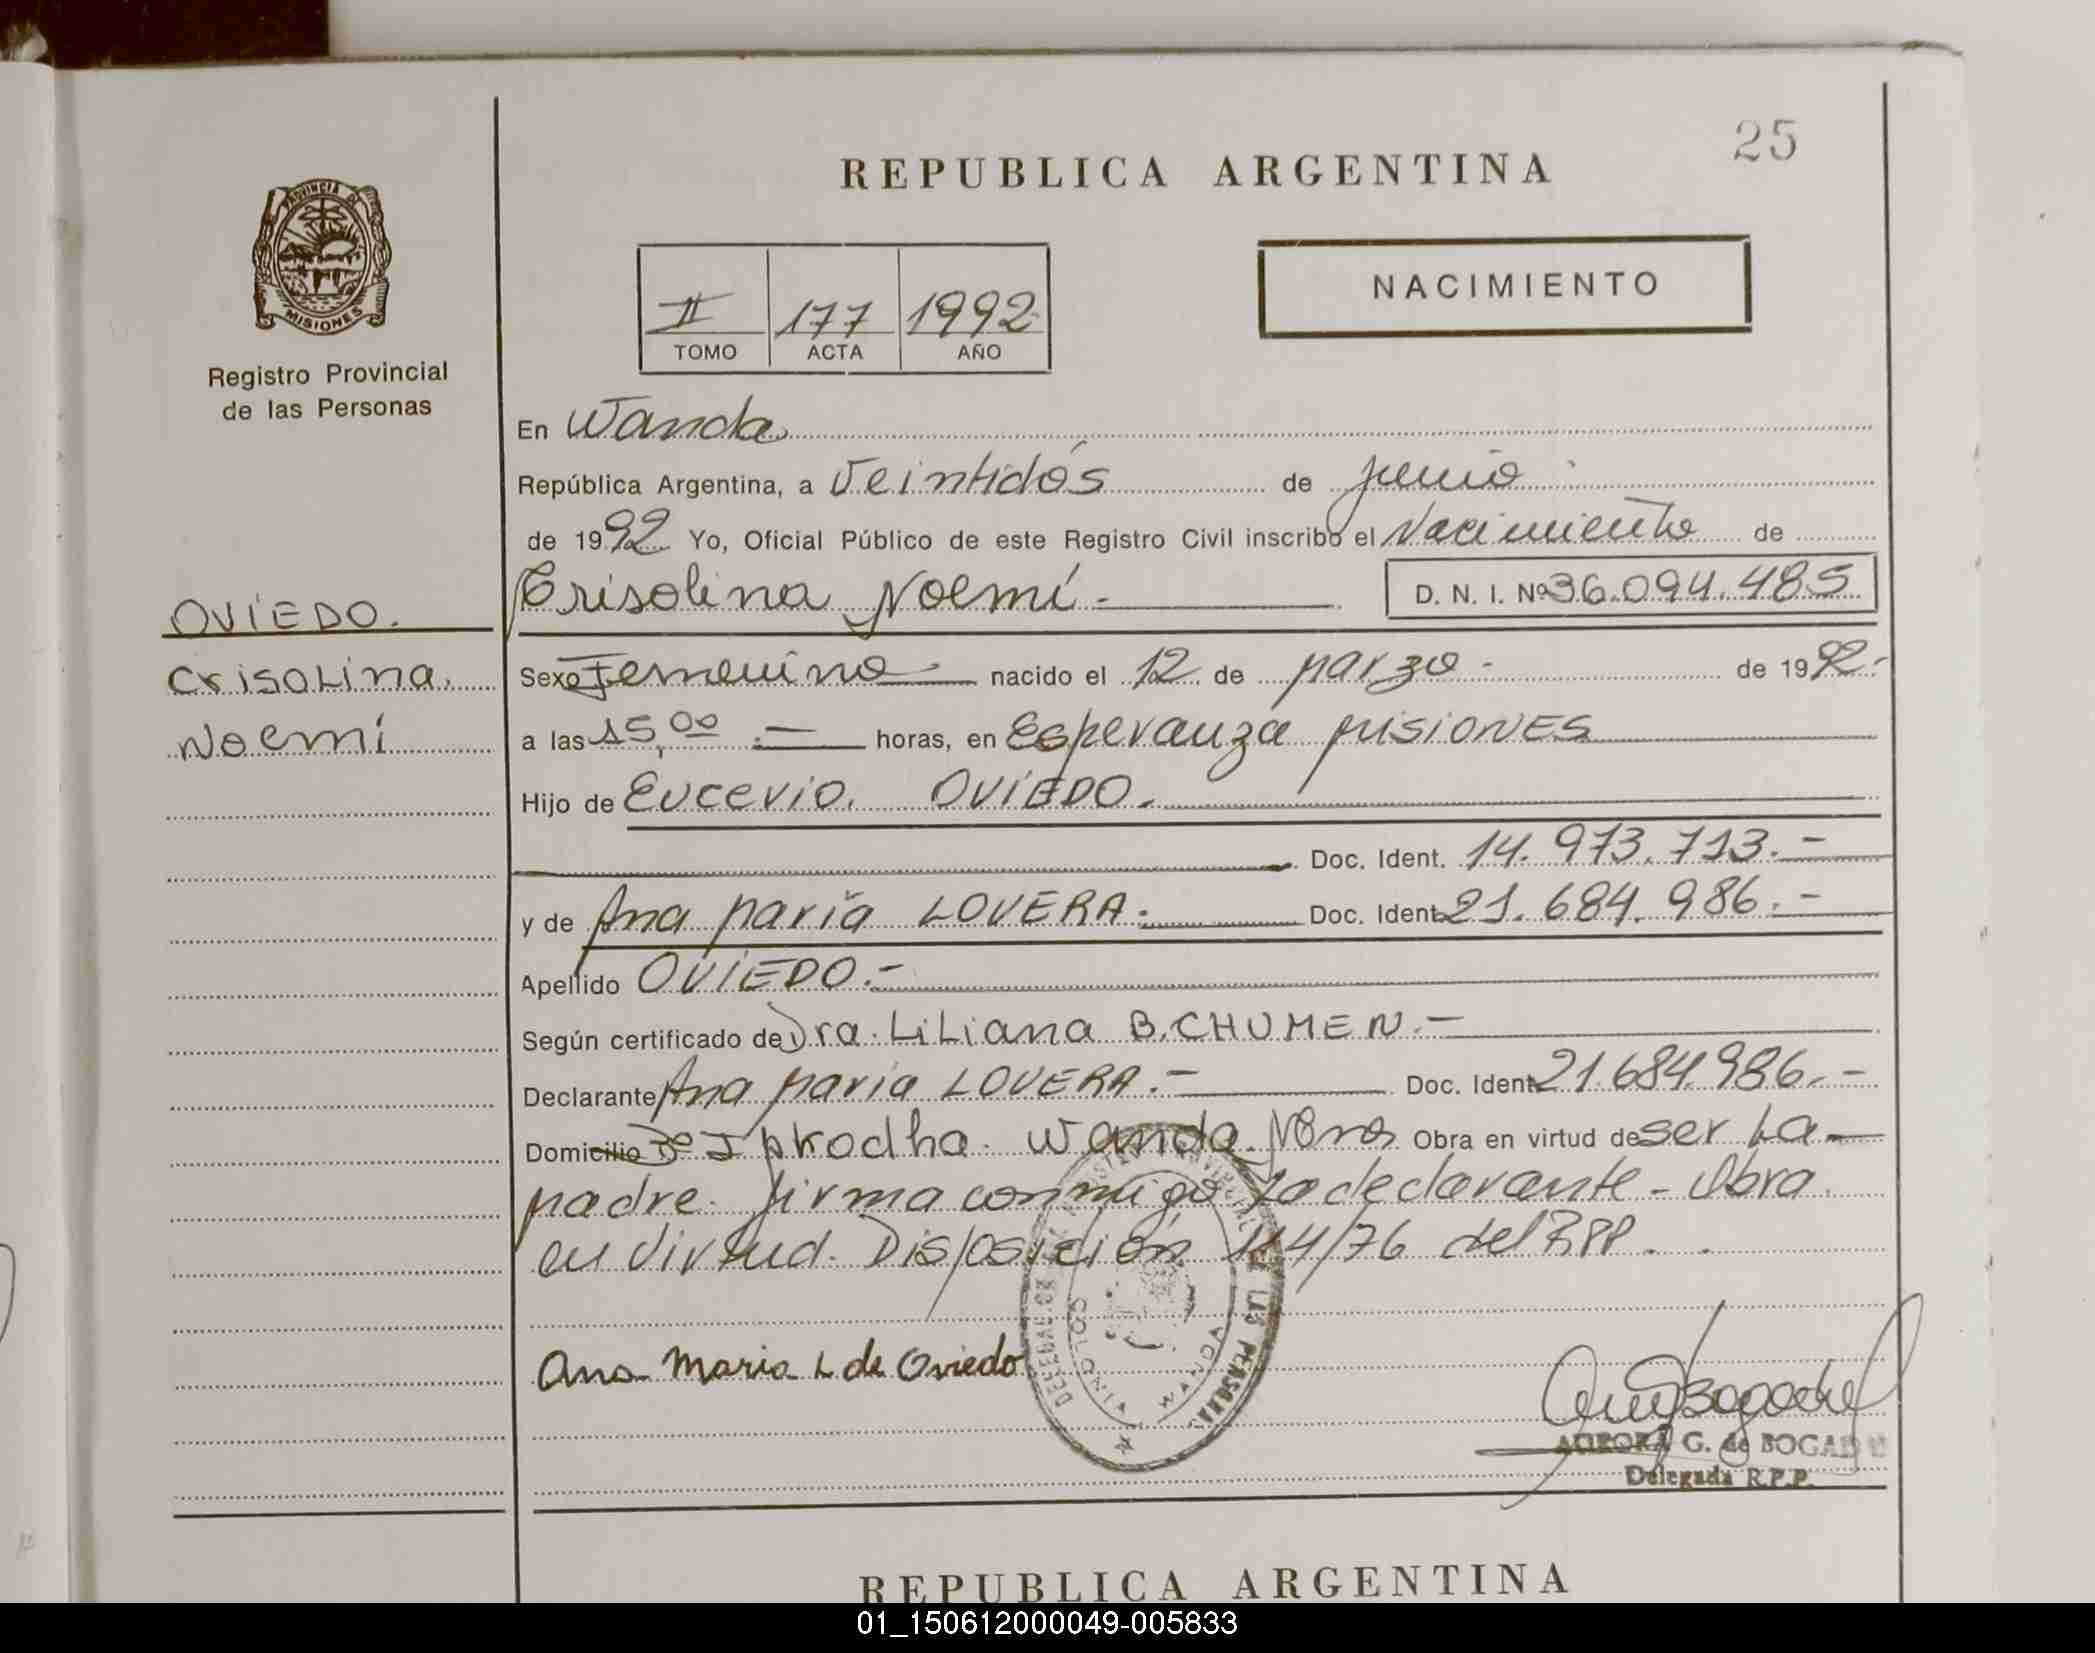 25
REPUBLICA ARGENTINA
NACIMIENTO
PROVINCIA DE
MISIONES
Registro Provincial
de las Personas
II 177 1992
TOMO ACTA AÑO
En Wanda
República Argentina, a Veintidós de junio
de 1992 Yo, Oficial Público de este Registro Civil inscribo el Nacimiento de
Crisolina Noemí.- D. N. I. Nº 36.094.485
OVIEDO.
Crisolina.
Noemí
Sexo Femenino nacido el 12 de marzo - de 1992.-
a las 15,00 .- horas, en Esperanza misiones
Hijo de Eucevio. OVIEDO.
Doc. Ident. 14.973.713.-
y de Ana maría LOVERA. Doc. Ident. 21.684.986.-
Apellido OVIEDO.-
Según certificado de Dra. Liliana B. CHUMEN.-
Declarante Ana maría LOVERA.- Doc. Ident. 21.684.986.-
Domicilio Bº Wanda. Mnes Obra en virtud de ser La
madre. firma conmigo La declarante - Obra
en virtud. Disposición 114/76 del RPP.
Ana Maria L de Oviedo
WANDA
LAS PERSONAS
AURORA G. de BOGADO
Delegada R.P.P.
REPUBLICA ARGENTINA
01_150612000049-005833